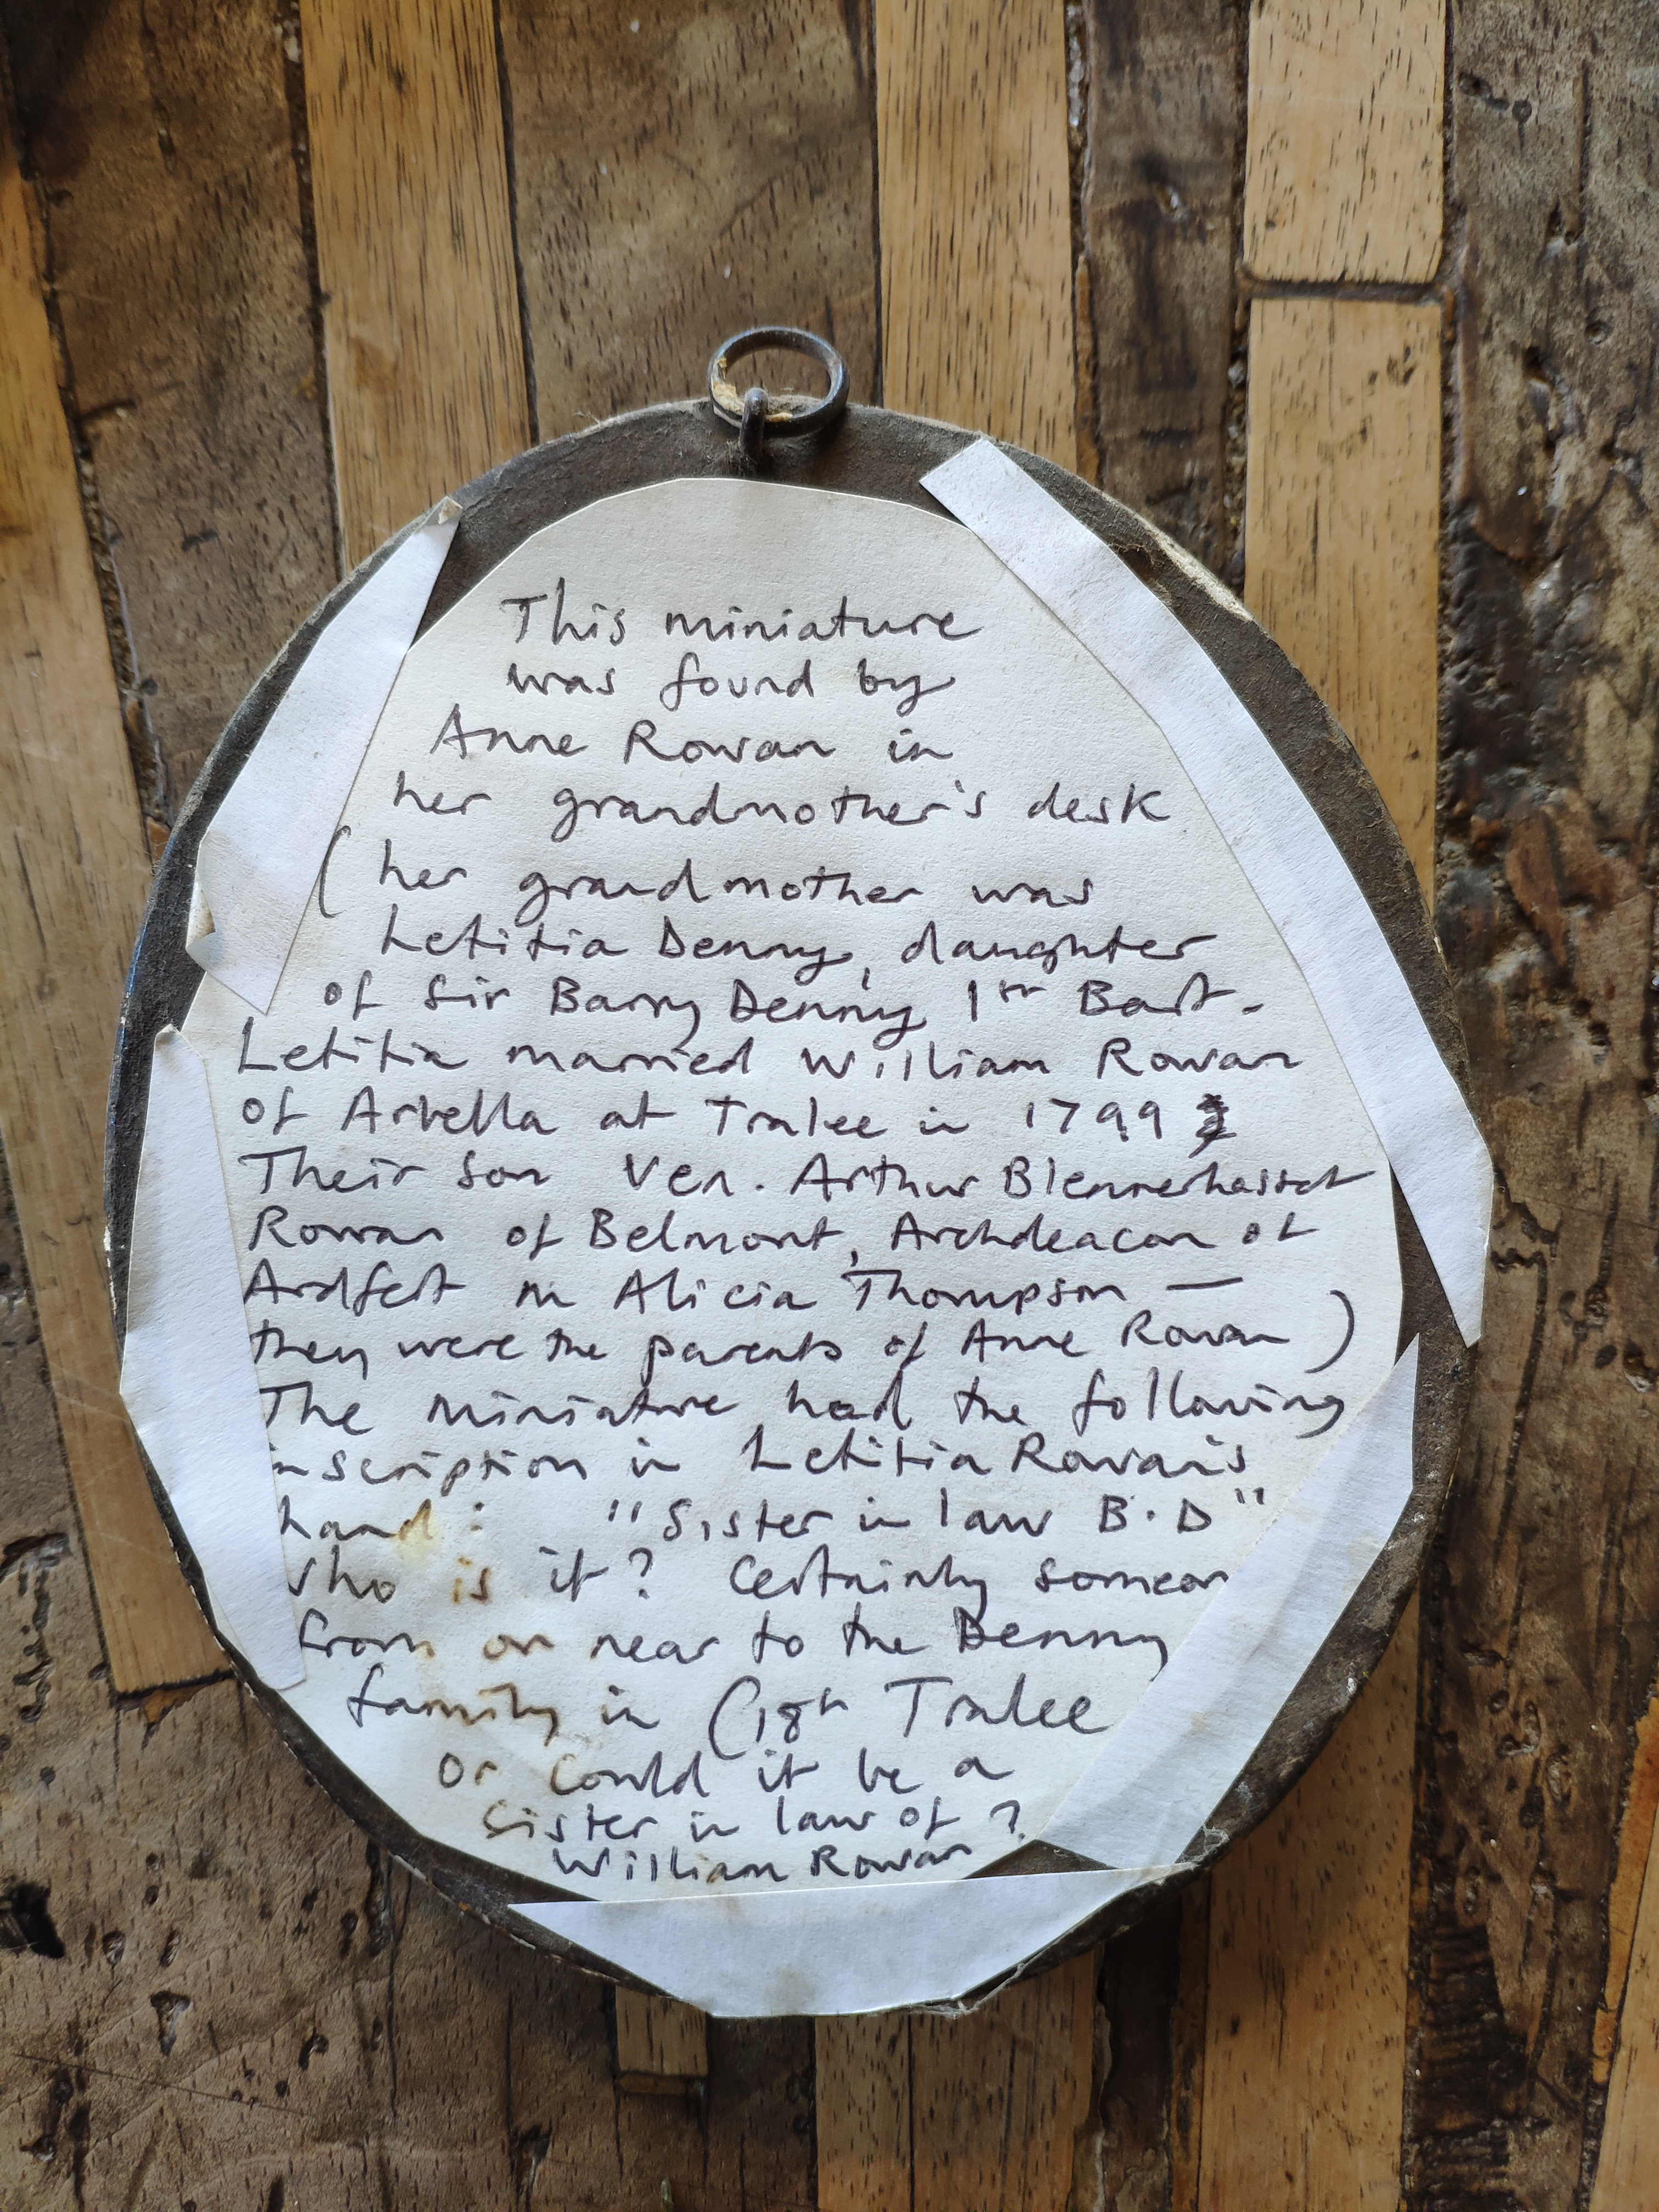 This miniature
was found by
Anne Rowan in
her grandmother's desk
(her grandmother was
Letitia Denny, daughter
of Sir Barry Denny 1st Bart.
Letitia married William Rowan
of Arbella at Tralee in 1799
Their son Ven. Arthur Blennerhasset
Rowan of Belmont, Archdeacon of
Ardfert m Alicia Thompson —
they were the parents of Anne Rowan)
The miniature had the following
inscription in Letitia Rowan's
hand: "Sister in law B.D"
Who is it? Certainly someon
from or near to the Denny
family in C18th Tralee
or could it be a
sister in law of ?
William Rowan